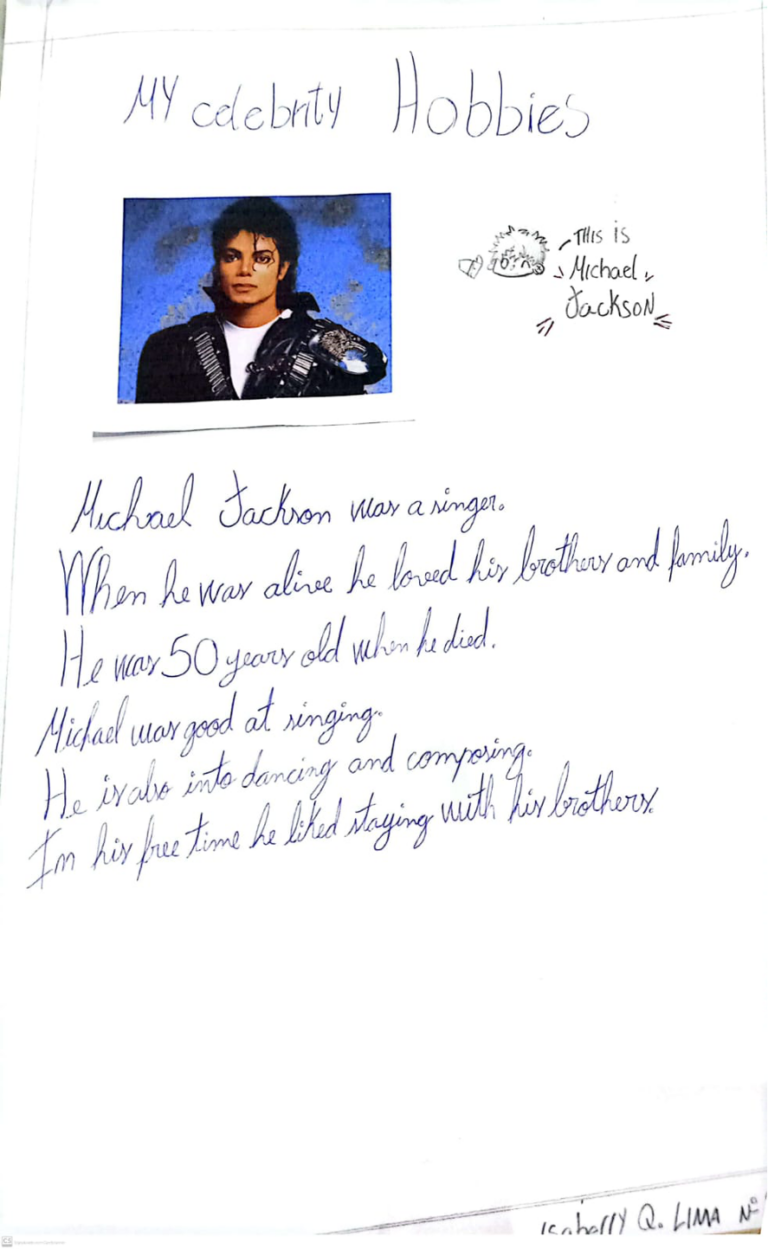 MY celebrity Hobbies
THIS is
Michael
Jackson
Michael Jackson was a singer.
When he was alive he loved his brothers and family.
He was 50 years old when he died.
Michael was good at singing.
He is also into dancing and composing.
In his free time he liked staying with his brothers.
Isabelly Q. LIMA Nº
CS